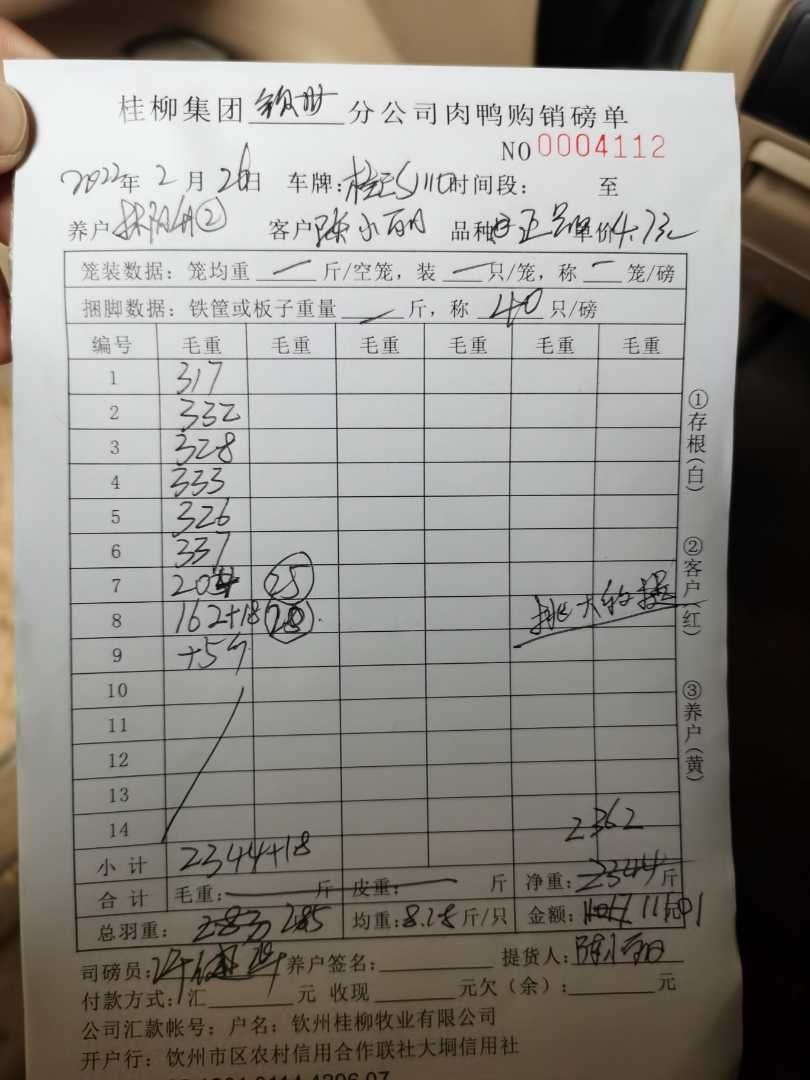 桂柳集团 钦州 分公司肉鸭购销磅单
NO 0004112
2022年 2月 26日 车牌: 时间段: 至
养户 ② 客户 陈小丽 品种 单价4.73元
笼装数据: 笼均重 一 斤/空笼, 装 一 只/笼, 称 一 笼/磅
捆脚数据: 铁筐或板子重量 一 斤, 称 40 只/磅
编号 毛重 毛重 毛重 毛重 毛重 毛重
1 317
2 332
3 328
4 333
5 326
6 337
7 204 25
8 162+18 20
9 +5
10
11
12
13
14
2362
小计 2344+18
合计 毛重: 斤 皮重: 斤 净重: 2344 斤
总羽重: 283 285 均重: 8.28 斤/只 金额:
司磅员: 养户签名: 提货人: 陈小丽
付款方式: 汇 元 收现 元欠(余): 元
公司汇款帐号: 户名: 钦州桂柳牧业有限公司
开户行: 钦州市区农村信用合作联社大垌信用社
①存根(白)
②客户(红)
③养户(黄)